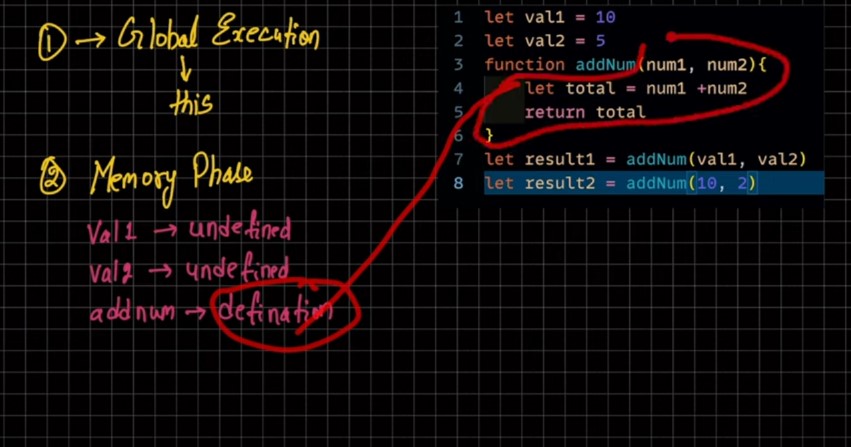 ① → Global Execution
↓
this
② Memory Phase
Val1 → undefined
val2 → undefined
addnum → defination
1 let val1 = 10
2 let val2 = 5
3 function addNum(num1, num2){
4 let total = num1 +num2
5 return total
6 }
7 let result1 = addNum(val1, val2)
8 let result2 = addNum(10, 2)